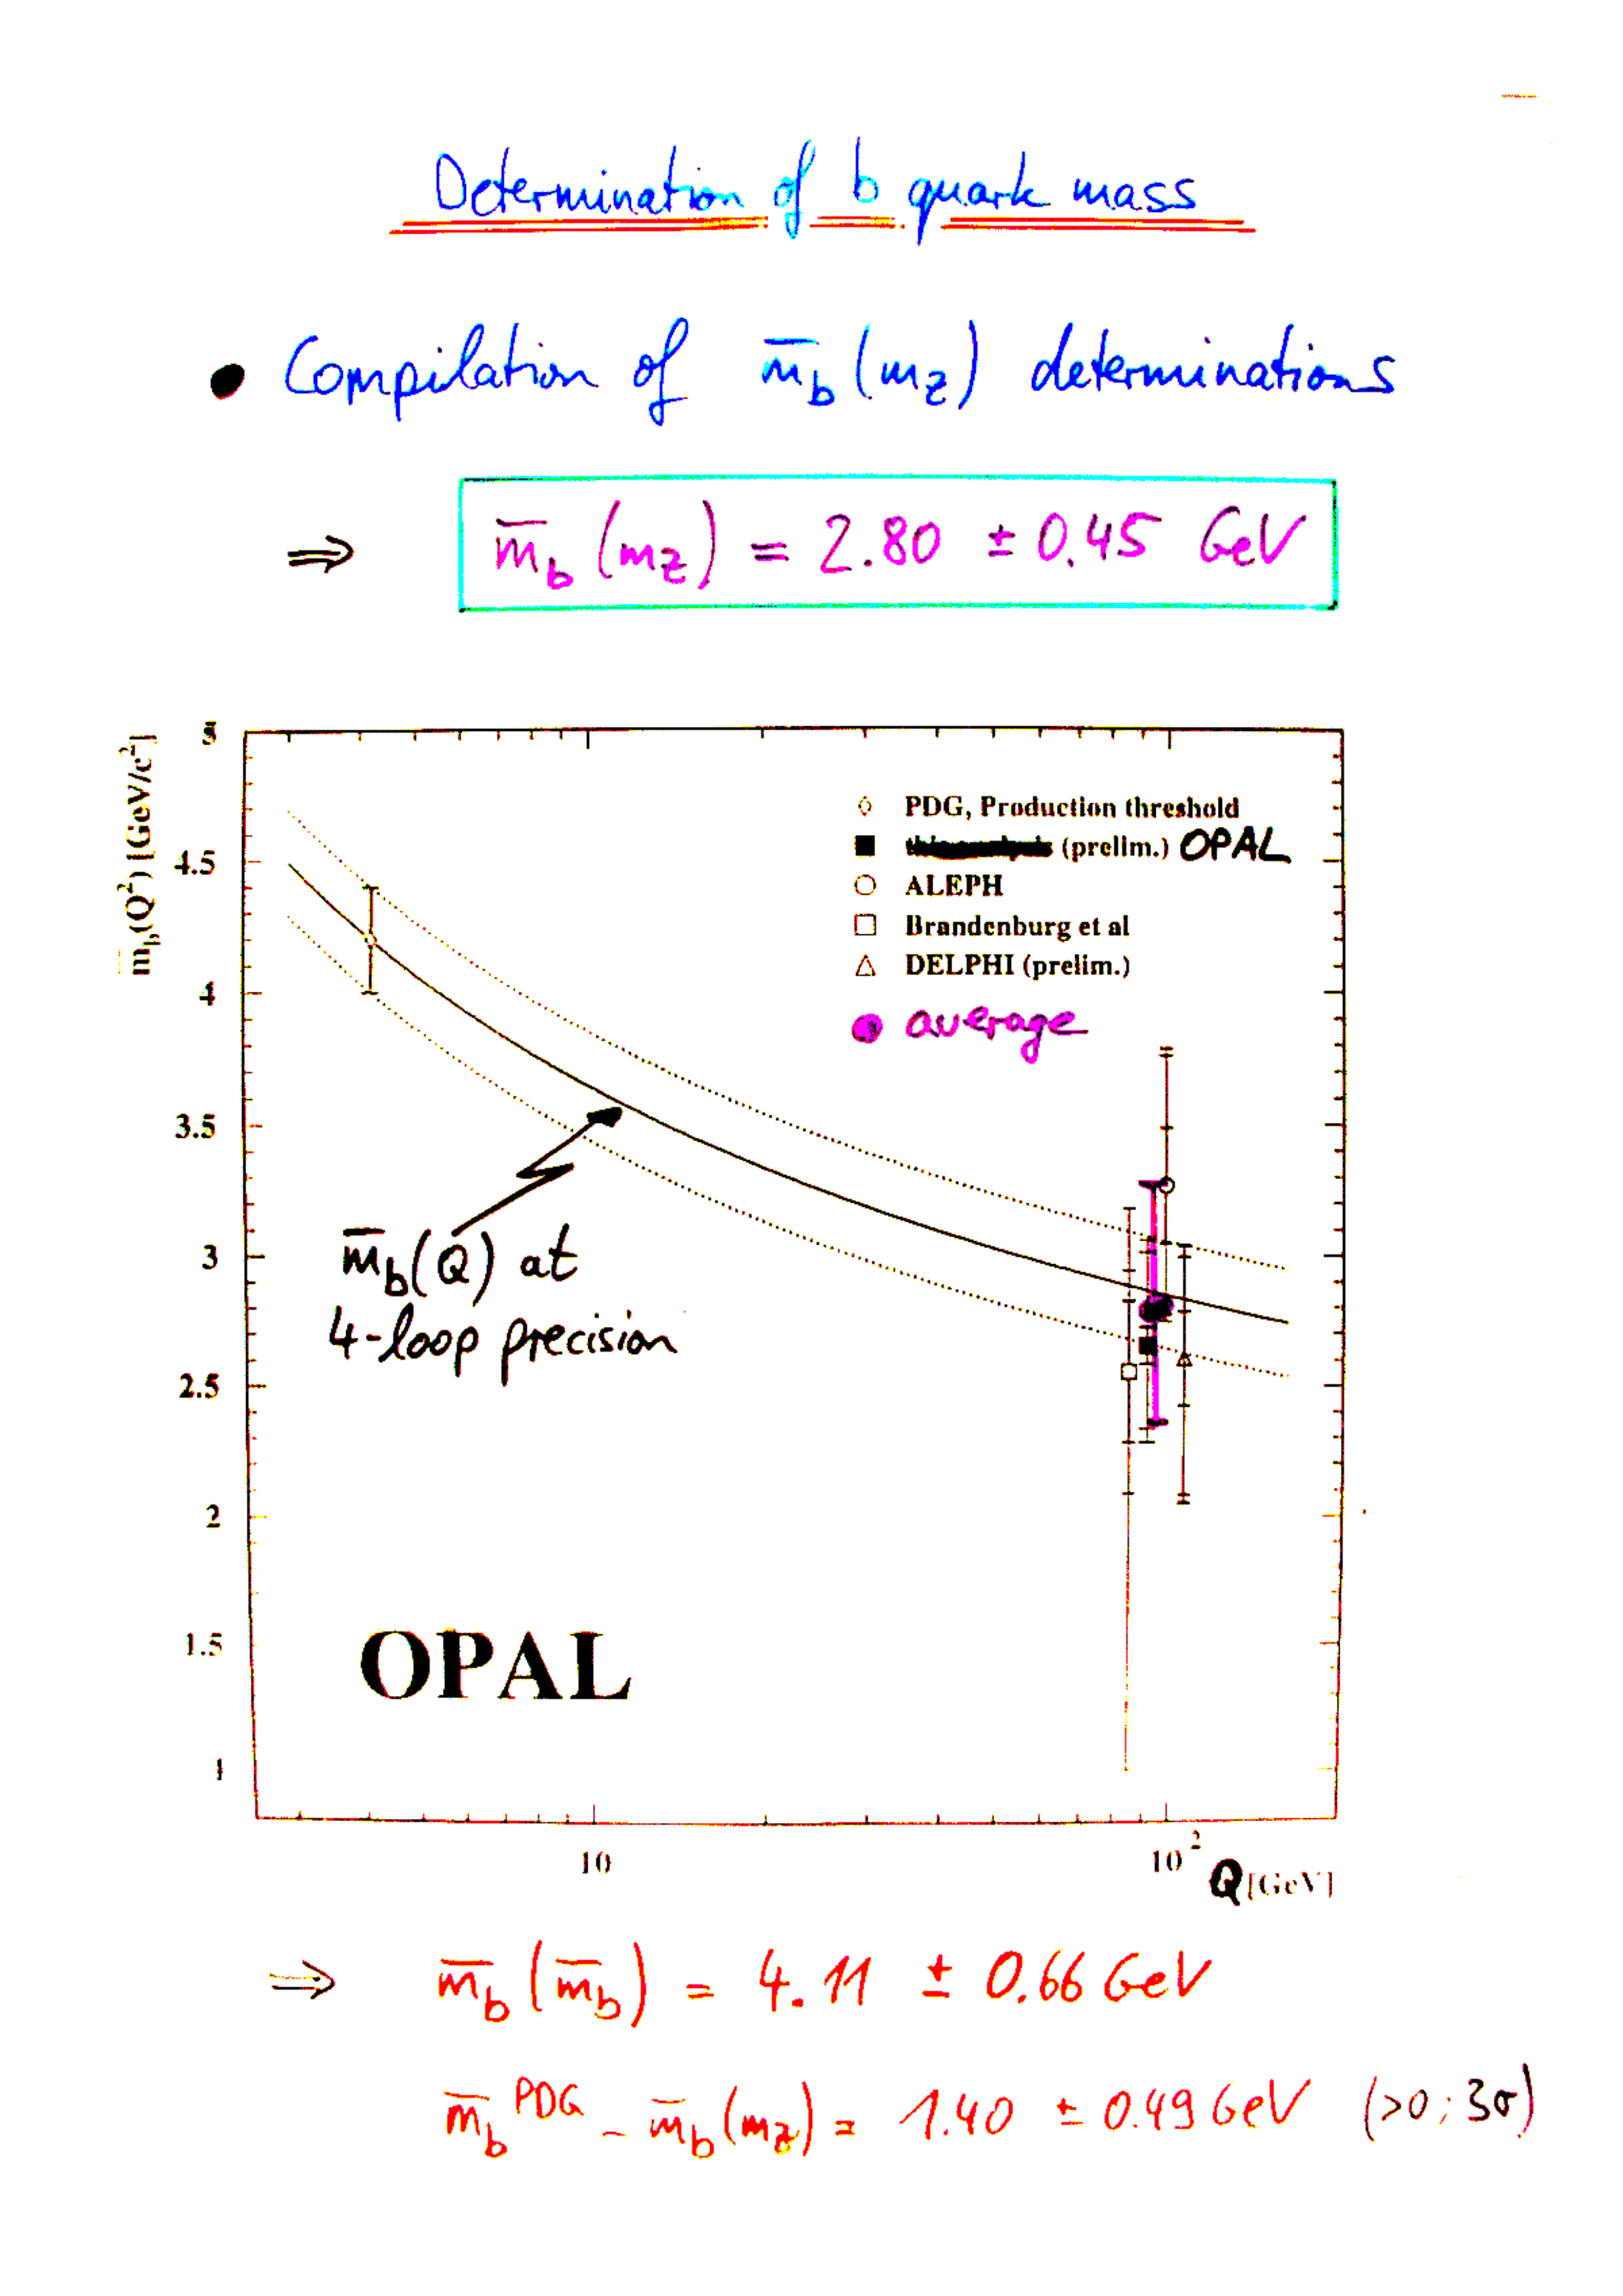 Determination of b quark mass
• Compilation of m̅b (mZ) determinations
⇒ m̅b (mZ) = 2.80 ± 0.45 GeV
m̅b(Q²) [GeV/c²]
5
4.5
4
3.5
3
2.5
2
1.5
1
PDG, Production threshold
(prelim.) OPAL
ALEPH
Brandenburg et al
DELPHI (prelim.)
average
m̅b(Q) at
4-loop precision
OPAL
10
10²
Q [GeV]
⇒ m̅b (m̅b) = 4.11 ± 0.66 GeV
m̅b PDG - m̅b (mZ) = 1.40 ± 0.49 GeV (>0; 3σ)